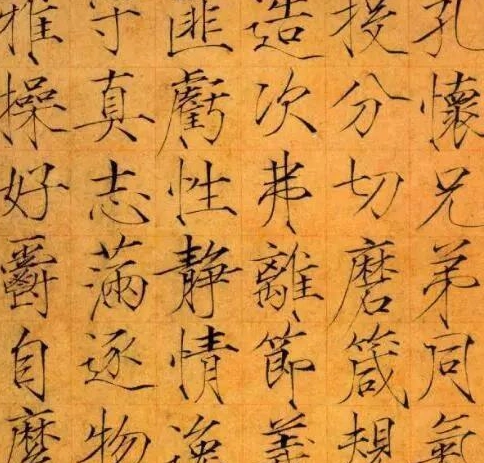 孔懷兄弟同氣
投分切磨箴規
造次弗離節義
匪虧性靜情逸
守真志滿逐物
雅操好爵自縻